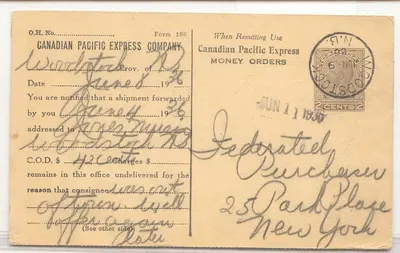 O.H. No. Form 186
CANADIAN PACIFIC EXPRESS COMPANY
Woodstock Prov. of N.B.
Date June 8 1936
You are notified that a shipment forwarded
by you June 4 1936
addressed to Jones Music
Woodstock N.B.
C.O.D. $ 42 Charges $
remains in this office undelivered for the
reason that consignee was out
of town will
offer again
(See other side) later
When Remitting Use
Canadian Pacific Express
MONEY ORDERS
WOODSTOCK
N.B.
2 CENTS 2
JUN 11 1936
Federated
Purchaser
25 Park Place
New York